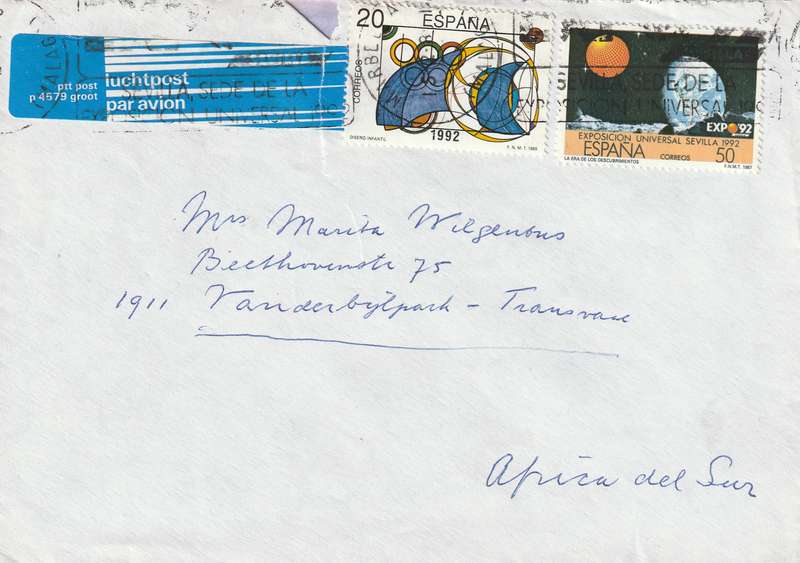 ptt post
p 4579 groot
luchtpost
par avion
20 ESPAÑA
CORREOS
1992
DISEÑO INFANTIL
F.N.M.T. 1989
EXPO 92
EXPOSICION UNIVERSAL SEVILLA 1992
ESPAÑA CORREOS 50
LA ERA DE LOS DESCUBRIMIENTOS
F.N.M.T. 1987
SEVILLA, SEDE DE LA
EXPOSICION UNIVERSAL
SEVILLA, SEDE DE LA
EXPOSICION UNIVERSAL
Mrs Marita Wilgenbus
Beethovenstr 75
1911 Vanderbijlpark - Transvaal
Africa del Sur